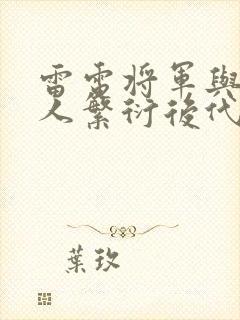 雷雷将軍與
人繁衍後代
葉玫